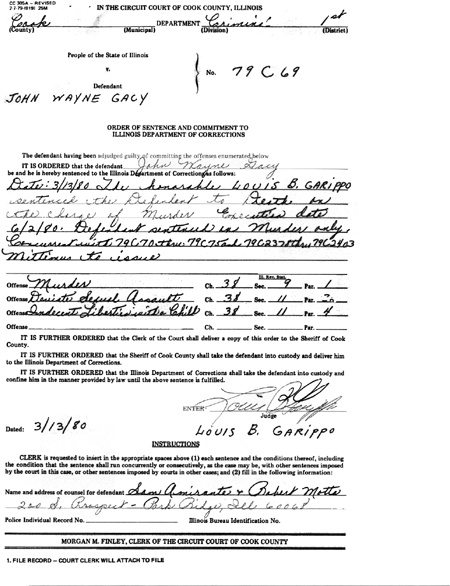 CC 305A - REVISED
2-7-79-(819) 25M
IN THE CIRCUIT COURT OF COOK COUNTY, ILLINOIS
Cook DEPARTMENT Criminal 1st
(County) (Municipal) (Division) (District)
People of the State of Illinois
v.
No. 79 C 69
Defendant
JOHN WAYNE GACY
ORDER OF SENTENCE AND COMMITMENT TO
ILLINOIS DEPARTMENT OF CORRECTIONS
The defendant having been adjudged guilty of committing the offenses enumerated below
IT IS ORDERED that the defendant John Wayne Gacy
be and he is hereby sentenced to the Illinois Department of Corrections as follows:
Date: 3/13/80 The honorable LOUIS B. GARIPPO
sentenced the Defendant to Death on
the charge of Murder Execution date
6/2/80. Defendant sentenced in Murder only.
Concurrent with 79C70 thru 79C75 and 79C2378 thru 79C2403
Mittimus to issue
Ill. Rev. Stat.
Offense Murder Ch. 38 Sec. 9 Par. 1
Offense Deviate Sexual Assault Ch. 38 Sec. 11 Par.
Offense Indecent Liberties with a Child Ch. 38 Sec. 11 Par. 4
Offense Ch. Sec. Par.
IT IS FURTHER ORDERED that the Clerk of the Court shall deliver a copy of this order to the Sheriff of Cook
County.
IT IS FURTHER ORDERED that the Sheriff of Cook County shall take the defendant into custody and deliver him
to the Illinois Department of Corrections.
IT IS FURTHER ORDERED that the Illinois Department of Corrections shall take the defendant into custody and
confine him in the manner provided by law until the above sentence is fulfilled.
ENTER: Louis B Garippo
Judge
Dated: 3/13/80 LOUIS B. GARIPPO
INSTRUCTIONS
CLERK is requested to insert in the appropriate spaces above (1) each sentence and the conditions thereof, including
the condition that the sentence shall run concurrently or consecutively, as the case may be, with other sentences imposed
by the court in this case, or other sentences imposed by courts in other cases; and (2) fill in the following information:
Name and address of counsel for defendant Sam Amirante & Robert Motta
220 S. Prospect - Park Ridge, Ill 60068
Police Individual Record No. Illinois Bureau Identification No.
MORGAN M. FINLEY, CLERK OF THE CIRCUIT COURT OF COOK COUNTY
1. FILE RECORD - COURT CLERK WILL ATTACH TO FILE